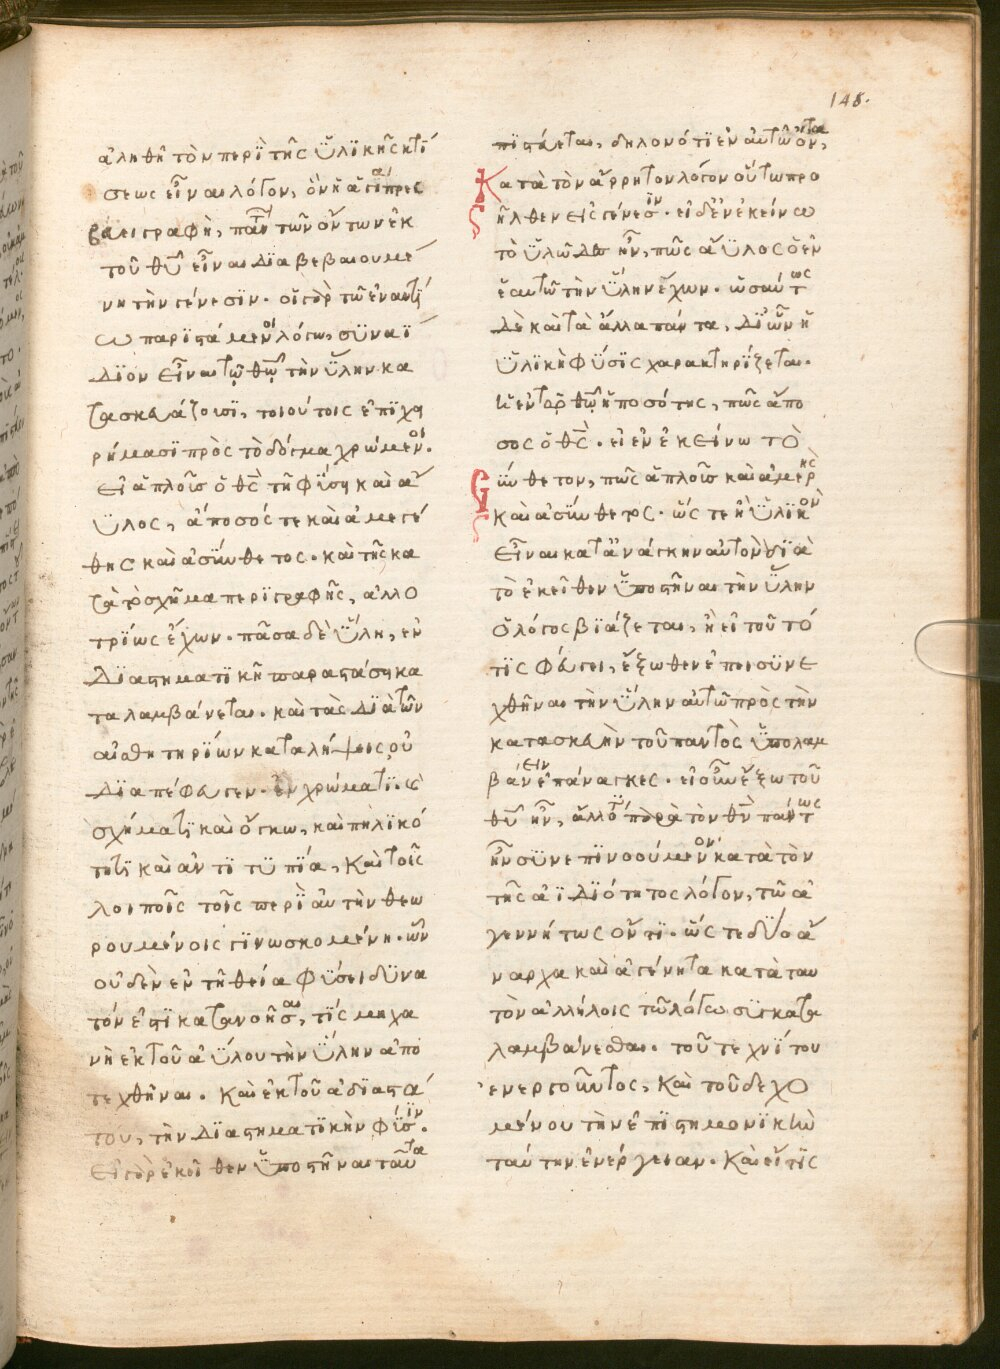 ἀληθῆ τὸν περὶ τῆς ὑλικῆς κτί
σεως εἶναι λόγον, ὃν ἡ ἁγία πρεσ
βεύει γραφὴ, πάντων τῶν ὄντων ἐκ
τοῦ θυ̅ εἶναι διαβεβαιουμέ
νη τὴν γένεσϊν. οἱ γὰρ τῶ ἐναντί
ω παρϊστάμενοι λόγω, συναΐ
δϊον εἶναι τῷ θω̅ τὴν ὕλην κα
τασκευάζουσϊ, τοιούτοις ἐπϊχει
ρήμασϊ πρὸς τὸ δόγμα χρώμενοι.
εἰ ἁπλοῦς ὁ θς̅ τῆ φύσει καὶ ἄ
ϋλος, ἄποσός τε καὶ ἀμεγέ
θης καὶ ἀσύνθετος. καὶ τῆς κα
τὰ τὸ σχῆμα περϊγραφῆς, ἀλλο
τρίως ἔχων. πᾶσα δὲ ὕλη, ἐν
διαστηματϊκῆ παραστάσει κα
ταλαμβάνεται. καὶ τὰς διὰ τῶν
αἰσθητηρίων καταλήψεις οὐ
διαπέφευγεν. ἐν χρώματϊ. καὶ
σχήματϊ καὶ ὄγκω, καὶ πηλϊκό
τητϊ καὶ ἀντιτυπία, καὶ τοῖς
λοιποῖς τοῖς περὶ αὐτὴν θεω
ρουμένοις γϊνωσκομένη. ὧν
οὐδὲν ἐν τῆ θεία φύσει δυνα
τόν ἐστϊ κατανοῆσαι, τίς μηχα
νὴ ἐκ τοῦ ἀΰλου τὴν ὕλην ἀπο
τεχθῆναι. καὶ ἐκ τοῦ ἀδϊαστά
του, τὴν διαστηματϊκὴν φύσϊν.
εἰ γὰρ ἐκεῖθεν ὑποστῆναι ταῦτα
πϊστεύεται, δηλονότϊ ἐν αὐτῶ ὄντα,
κατὰ τὸν ἄρρητον λόγον οὕτω προ
ῆλθεν εἰς γένεσϊν. εἰ δὲ ἐν ἐκείνω
τὸ ὑλῶδες ἦν, πῶς ἄϋλος ὁ ἐν
ἑαυτῶ τὴν ὕλην ἔχων. ὡσαύτως
δὲ καὶ τὰ ἄλλα πάντα, δι' ὧν ἡ
ὑλϊκὴ φύσϊς χαρακτηρίζεται.
εἰ ἐν τῶ θω̅ ἡ ποσότης, πῶς ἄπο
σος ὁ θς̅. εἰ ἐν ἐκείνω τὸ
σύνθετον, πῶς ἁπλοῦς καὶ ἀμερὴς
καὶ ἀσύνθετος. ὥστε ἢ ὑλϊκὸν
εἶναι κατ' ἀνάγκην αὐτὸν δϊὰ
τὸ ἐκεῖθεν ὑποστῆναι τὴν ὕλην
ὁ λόγος βϊάζεται, ἢ εἰ τοῦτό
τϊς φεύγει, ἔξωθεν ἐπεισυνε
χθῆναι τὴν ὕλην αὐτῶ πρὸς τὴν
κατασκευὴν τοῦ παντὸς ὑπολαμ
βάνειν ἐπάναγκες. εἰ οὖν ἔξω τοῦ
θυ̅ ἦν, ἄλλό τϊ παρὰ τὸν θν̅ πάντως
ἦν συνεπϊνοούμενον κατὰ τὸν
τῆς ἀϊδιότητος λόγον, τῶ ἀ
γεννήτως ὄντϊ. ὥστε δύο ἄ
ναρχα καὶ ἀγένητα κατὰ ταυ
τὸν ἀλλήλοις τῶ λόγω συγκατα
λαμβάνεσθαι. τοῦ τεχνϊτου
ἐνεργοῦντος, καὶ τοῦ δεχο
μένου τὴν ἐπϊστημονϊκὴν
ταύτην ἐνέργειαν. καὶ εἴ τϊς